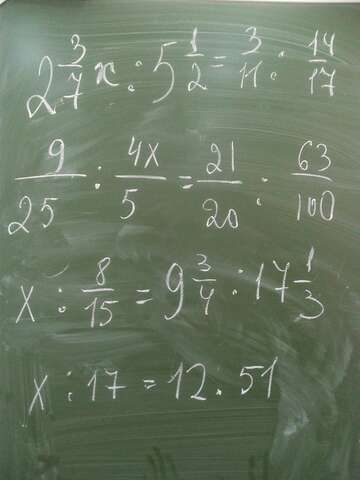 2 3/7 x : 5 1/2 = 3/11 : 14/17
9/25 : 4x/5 = 21/20 : 63/100
x : 8/15 = 9 3/4 : 17 1/3
x : 17 = 12 . 51